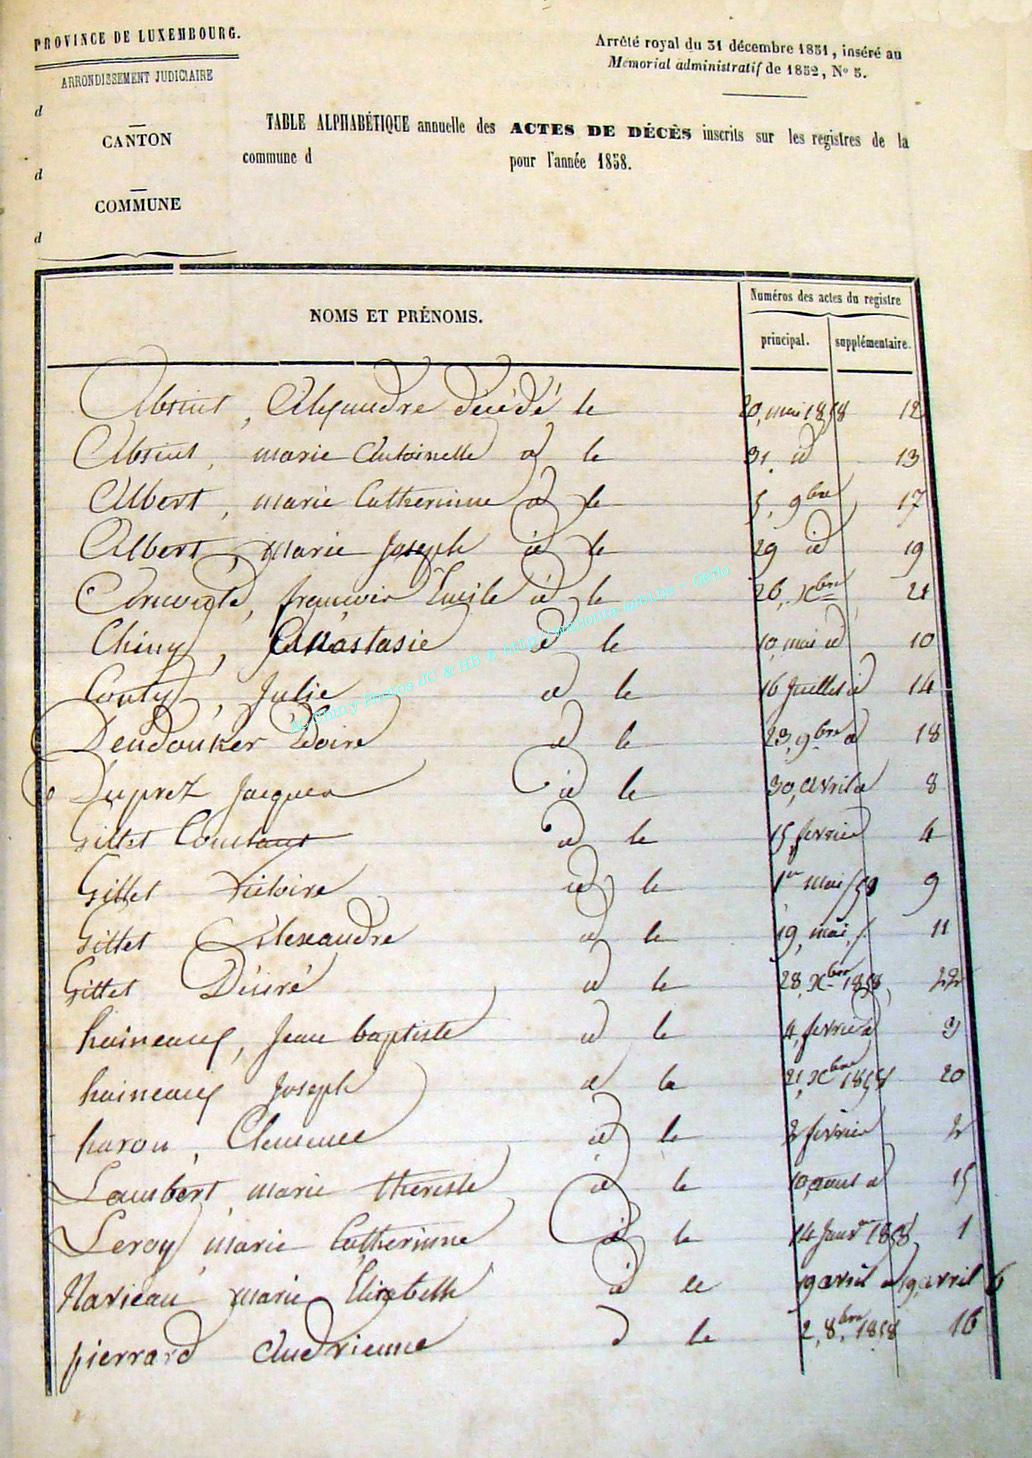 PROVINCE DE LUXEMBOURG.
ARRONDISSEMENT JUDICIAIRE
d
CANTON
d
COMMUNE
d
Arrêté royal du 31 décembre 1831, inséré au
Mémorial administratif de 1832, No 5.
TABLE ALPHABÉTIQUE annuelle des ACTES DE DÉCÈS inscrits sur les registres de la
commune d pour l'année 1858.
NOMS ET PRÉNOMS.
Numéros des actes du registre
principal. supplémentaire.
Absent, Alexandre décédé le 20, mai 1858 12
Absent, marie Antoinette d le 31. id 13
Albert, marie Catherinne d le 5, 9bre 17
Albert, Marie Joseph id le 29 id 19
françois Emile id le 26, Xbre 21
Chiny, Anastasie d le 10, mai id 10
Conty, Julie d le 16 Juillet id 14
Dendonker d le 23, 9bre d 18
Duprez Jacques id le 30, avril d 8
Gillet Constant d le 15, fevrier 4
Gillet Victoire id le 1er mai 9
Gillet Alexandre d le 19, mai, 11
Gillet Désiré d le 28, Xbre 1858, 22
haineaux, Jean baptiste d le 4, fevrier 3
haineaux Joseph d le 21, Xbre 1858 20
haron, Clemence id le 2 fevrier 2
Lambert, marie thereste d le 10, aout d 15
Leroy, marie Catherinne d le 14 Janvr 1858, 1
Navieau marie Elizabeth d le 19 avril d 19, avril 6
pierrard Andrienne d le 2, 8bre, 1858 16